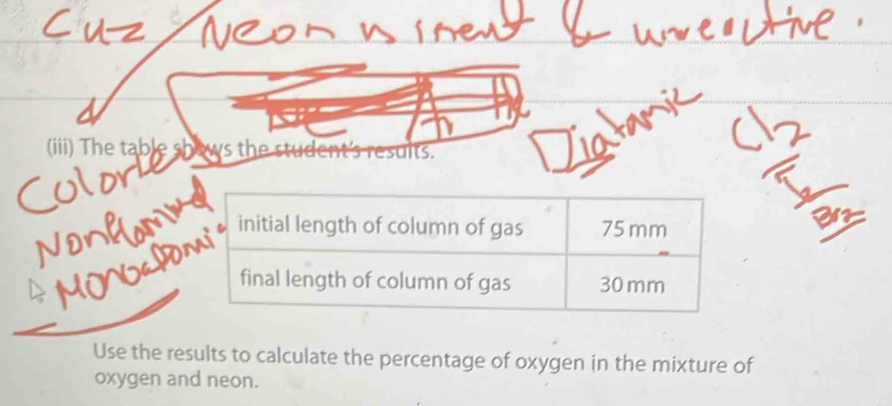 Cuz Neon is inert & unreactive.
Ne Ar He
Diatomic Cl2
(iii) The table shows the student's results.
Colorless
Br2
Monoatomic
initial length of column of gas 75 mm
final length of column of gas 30 mm
Use the results to calculate the percentage of oxygen in the mixture of
oxygen and neon.